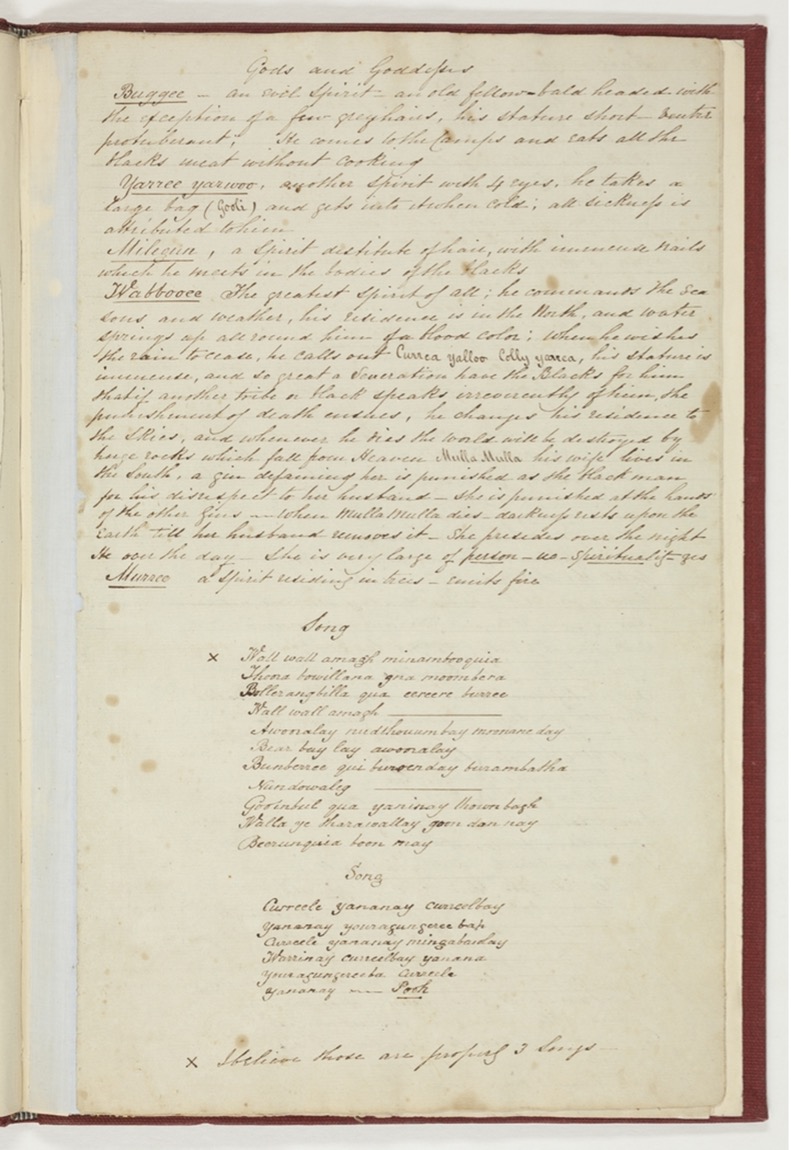 Gods and Goddesses
Buggee – an evil Spirit – an old fellow – bald headed with
the exception of a few grey hairs, his stature short –
protuberant; He comes to the Camps and eats all the
blacks meat without cooking
Yarree yarwoo, another Spirit with 4 eyes, he takes a
large bag (Gooli) and gets into it when cold; all sickness is
attributed to him
Milegun, a Spirit destitute of hair, with immense nails
which he meets in the bodies of the blacks
Wabbooee The greatest Spirit of all; he commands the Sea
sons and weather, his residence is in the North, and water
springs up all round him of a blood color; when he wishes
the rain to cease, he calls out Currea yalloo Colly yarea, his stature is
immense, and so great a Veneration have the Blacks for him
that if another tribe or black speaks irreverently of him, the
punishment of death ensues, he changes his residence to
the skies, and whenever he dies the world will be destroyed by
huge rocks which fall from Heaven Mulla Mulla his wife lives in
the South, a gin defaming her is punished as the black man
for his disrespect to her husband – she is punished at the hands
of the other Gins — when Mulla Mulla dies – darkness rests upon the
Earth till her husband removes it – She presides over the night
He over the day – She is very large of person – no – Spirituality – yes
Murreo a Spirit residing in trees – emits fire
Song
x Wall wall amagh minambooquia
Thoora bowillana gna moombera
Bollerangbilla qua eereere burree
Wall wall amagh ———
Awoonalay niedthouumbay momane day
Bear buy lay awoonalay
Bunberree qui burwenday burambatha
Nundowaleg ———
Gooinbul qua yaninay thownbagh
Walla ye tharawallay goon dan nay
Beerunquia boon may
Song
Curreele yananay curreelbay
yananay youragungeree bah
Curreele yananay mingabarday
Warrinay curreelbay yanana
youragungereeba Curreele
yananay —— Pooh
x I believe those are properly 3 Songs